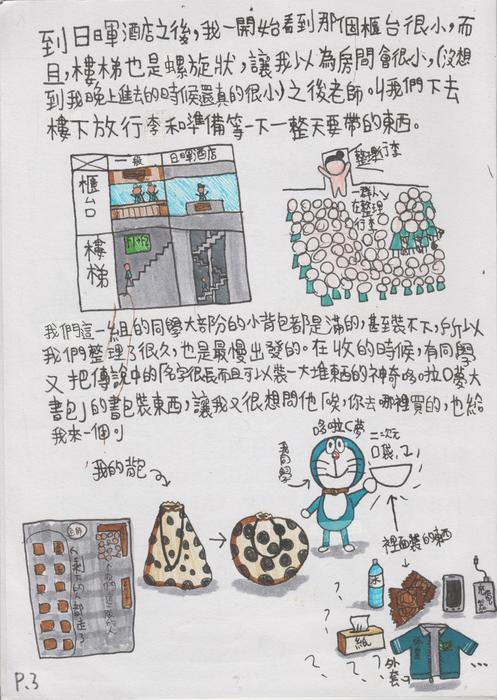 到日暉酒店之後,我一開始看到那個櫃台很小,而
且,樓梯也是螺旋狀,讓我以為房間會很小,(沒想
到我晚上進去的時候還真的很小)之後老師叫我們下去
樓下放行李和準備等一下一整天要帶的東西。
一般
日暉酒店
櫃台
樓梯
整理行李
一群人
在整理
行李
我們這一組的同學大部份的小背包都是滿的,甚至裝不下,所以
我們整理了很久,也是最慢出發的。在收的時候,有同學
又把傳說中的「名字很長而且可以裝一大堆東西的神奇哆啦O夢大
書包」的書包裝東西,讓我又很想問他「唉,你去哪裡買的,也給
我來一個。」
我的背包
哆啦C夢
我同學
二次元
口袋
裡面裝的東西
水
紙
外套
人剩下的人都走了
P.3